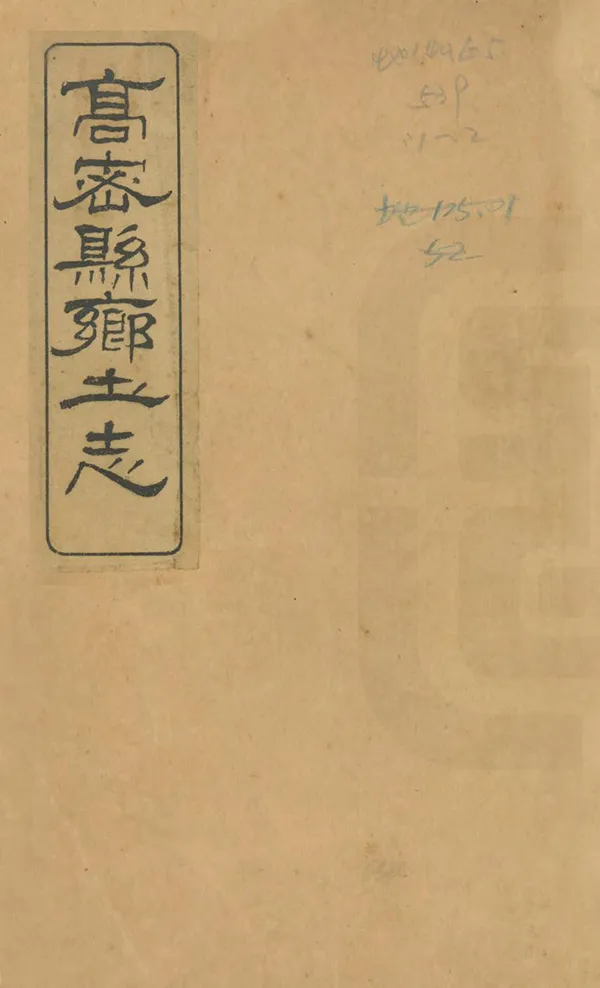 高密縣鄉土志
地175.01
52